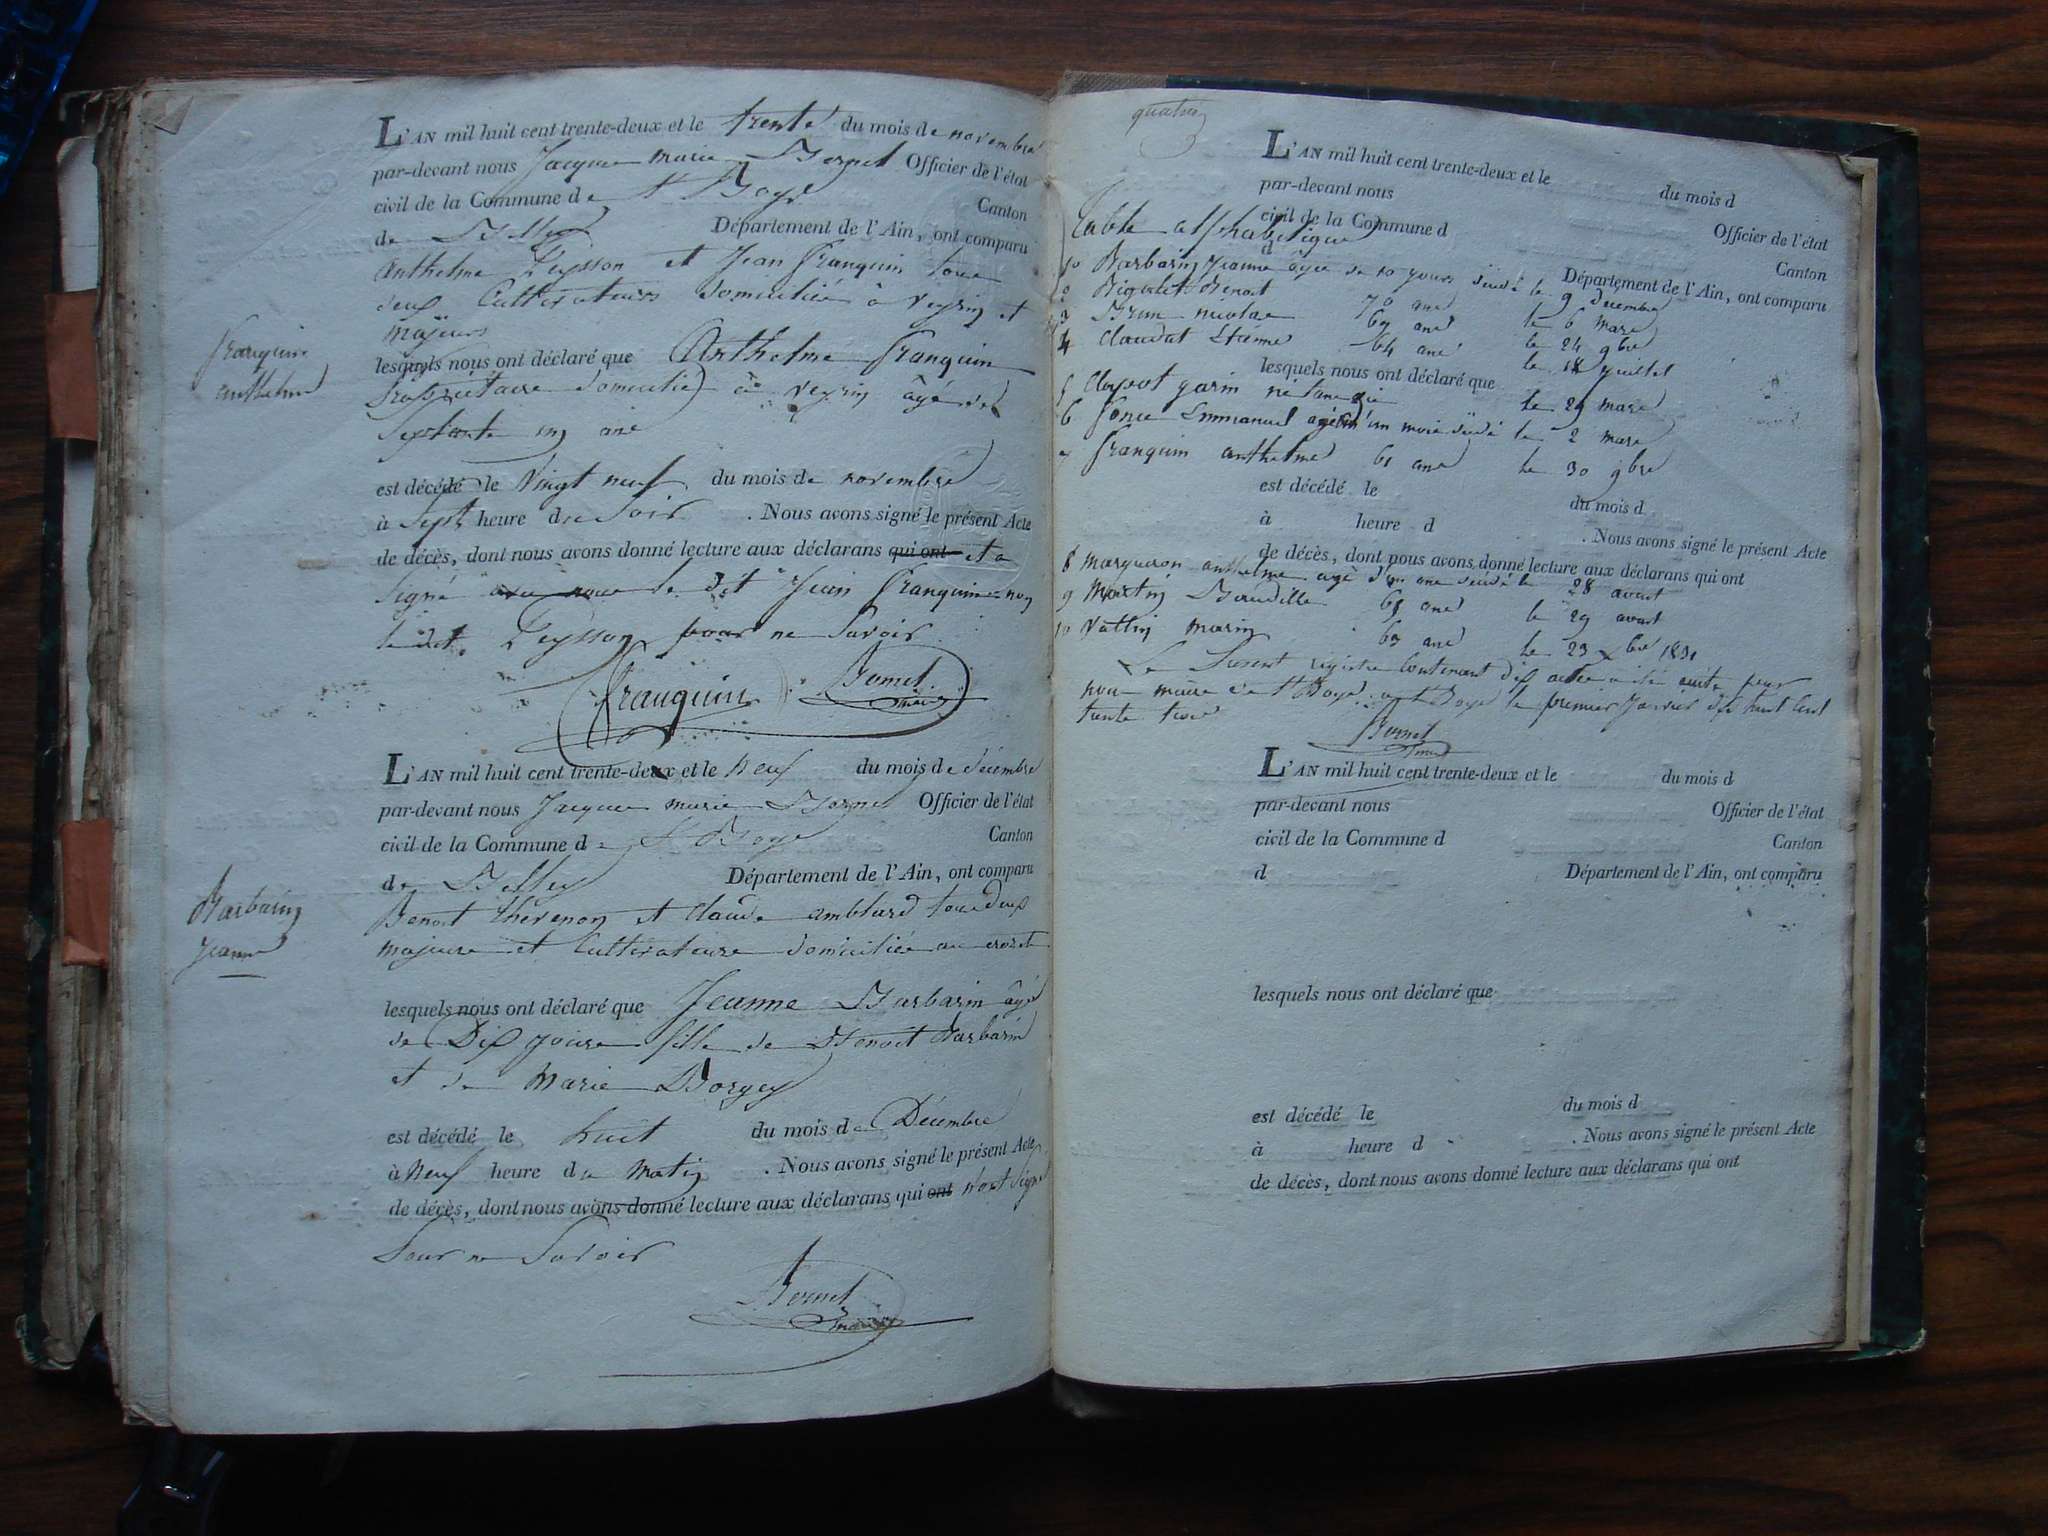 L'AN mil huit cent trente-deux et le trente du mois de novembre
par-devant nous Jacque marie Bornet Officier de l'état
civil de la Commune de St Boys Canton
de Belley Département de l'Ain, ont comparu
Anthelme Peysson et Jean franquin tous
deux Cultivateurs domiciliés à veyrin et
majeurs
franquin
anthelme
lesquels nous ont déclaré que Anthelme franquin
propriétaire domicilié à veyrin âgé de
Septante un ans
est décédé le Vingt neuf du mois de novembre
à Sept heure du Soir . Nous avons signé le présent Acte
de décès, dont nous avons donné lecture aux déclarans qui ont et a
signé avec nous le dit Jean franquin non
le dit Peysson pour ne Savoir
franquin Bornet
maire
L'AN mil huit cent trente-deux et le neuf du mois de décembre
par-devant nous Jacque marie Bornet Officier de l'état
civil de la Commune de St Boys Canton
de Belley Département de l'Ain, ont comparu
Benoit thevenon et Claude amblard tous deux
majeurs et Cultivateurs domiciliés au
Barbarin
Jeanne
lesquels nous ont déclaré que Jeanne Barbarin âgé
de Dix jours fille de Benoit Barbarin
et de Marie Borgey
est décédé le huit du mois de Décembre
à neuf heure du matin . Nous avons signé le présent Acte
de décès, dont nous avons donné lecture aux déclarans qui ont n'ont signé
pour ne Savoir
Bornet
maire
L'AN mil huit cent trente-deux et le du mois d
par-devant nous Officier de l'état
civil de la Commune d Canton
d Département de l'Ain, ont comparu
Table alphabétique
Barbarin Jeanne âgée de 10 jours décédé le 9 décembre
2 Benoit 70 ans le 6 mars
3 Brun nicolas 69 ans le 24 9bre
4 Claudat Etienne 64 ans le 18 juillet
lesquels nous ont déclaré que
5 le 29 mars
6 Emmanuel âgé d'un mois décédé le 2 mars
7 franquin anthelme 61 ans le 30 9bre
est décédé le du mois d
à heure d . Nous avons signé le présent Acte
de décès, dont nous avons donné lecture aux déclarans qui ont
8 Marqueron anthelme agé d'un ans décédé le 28 avout
9 Martin Baudille 61 ans le 29 avout
10 Vattin marin 69 ans le 23 Xbre 1831
Le présent registre Contenant dix actes a été par
nous maire de St Boys, a St Boys le premier Janvier dix huit Cent
trente trois
Bornet
maire
L'AN mil huit cent trente-deux et le du mois d
par-devant nous Officier de l'état
civil de la Commune d Canton
d Département de l'Ain, ont comparu
lesquels nous ont déclaré que
est décédé le du mois d
à heure d . Nous avons signé le présent Acte
de décès, dont nous avons donné lecture aux déclarans qui ont